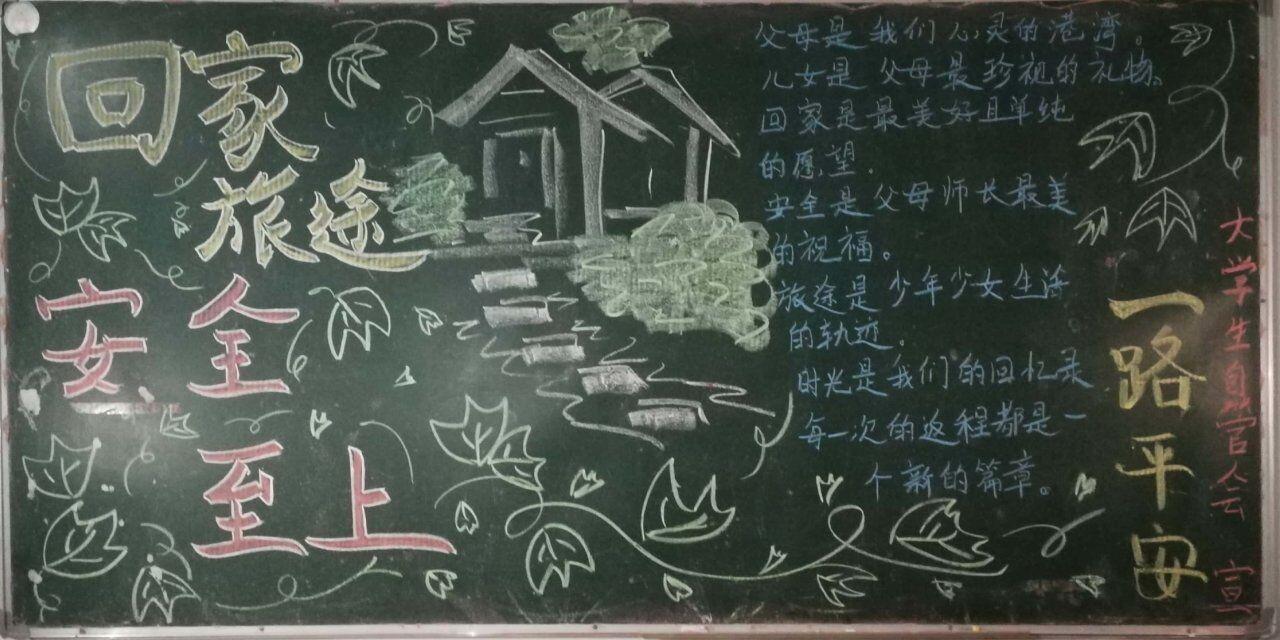 回家
旅途
安全
至上
父母是我们心灵的港湾。
儿女是父母最珍视的礼物。
回家是最美好且单纯
的愿望.
安全是父母师长最美
的祝福。
旅途是少年少女生活
的轨迹.
时光是我们的回忆录
每一次的返程都是一
个新的篇章。
一路平安
大学生自管会 宣